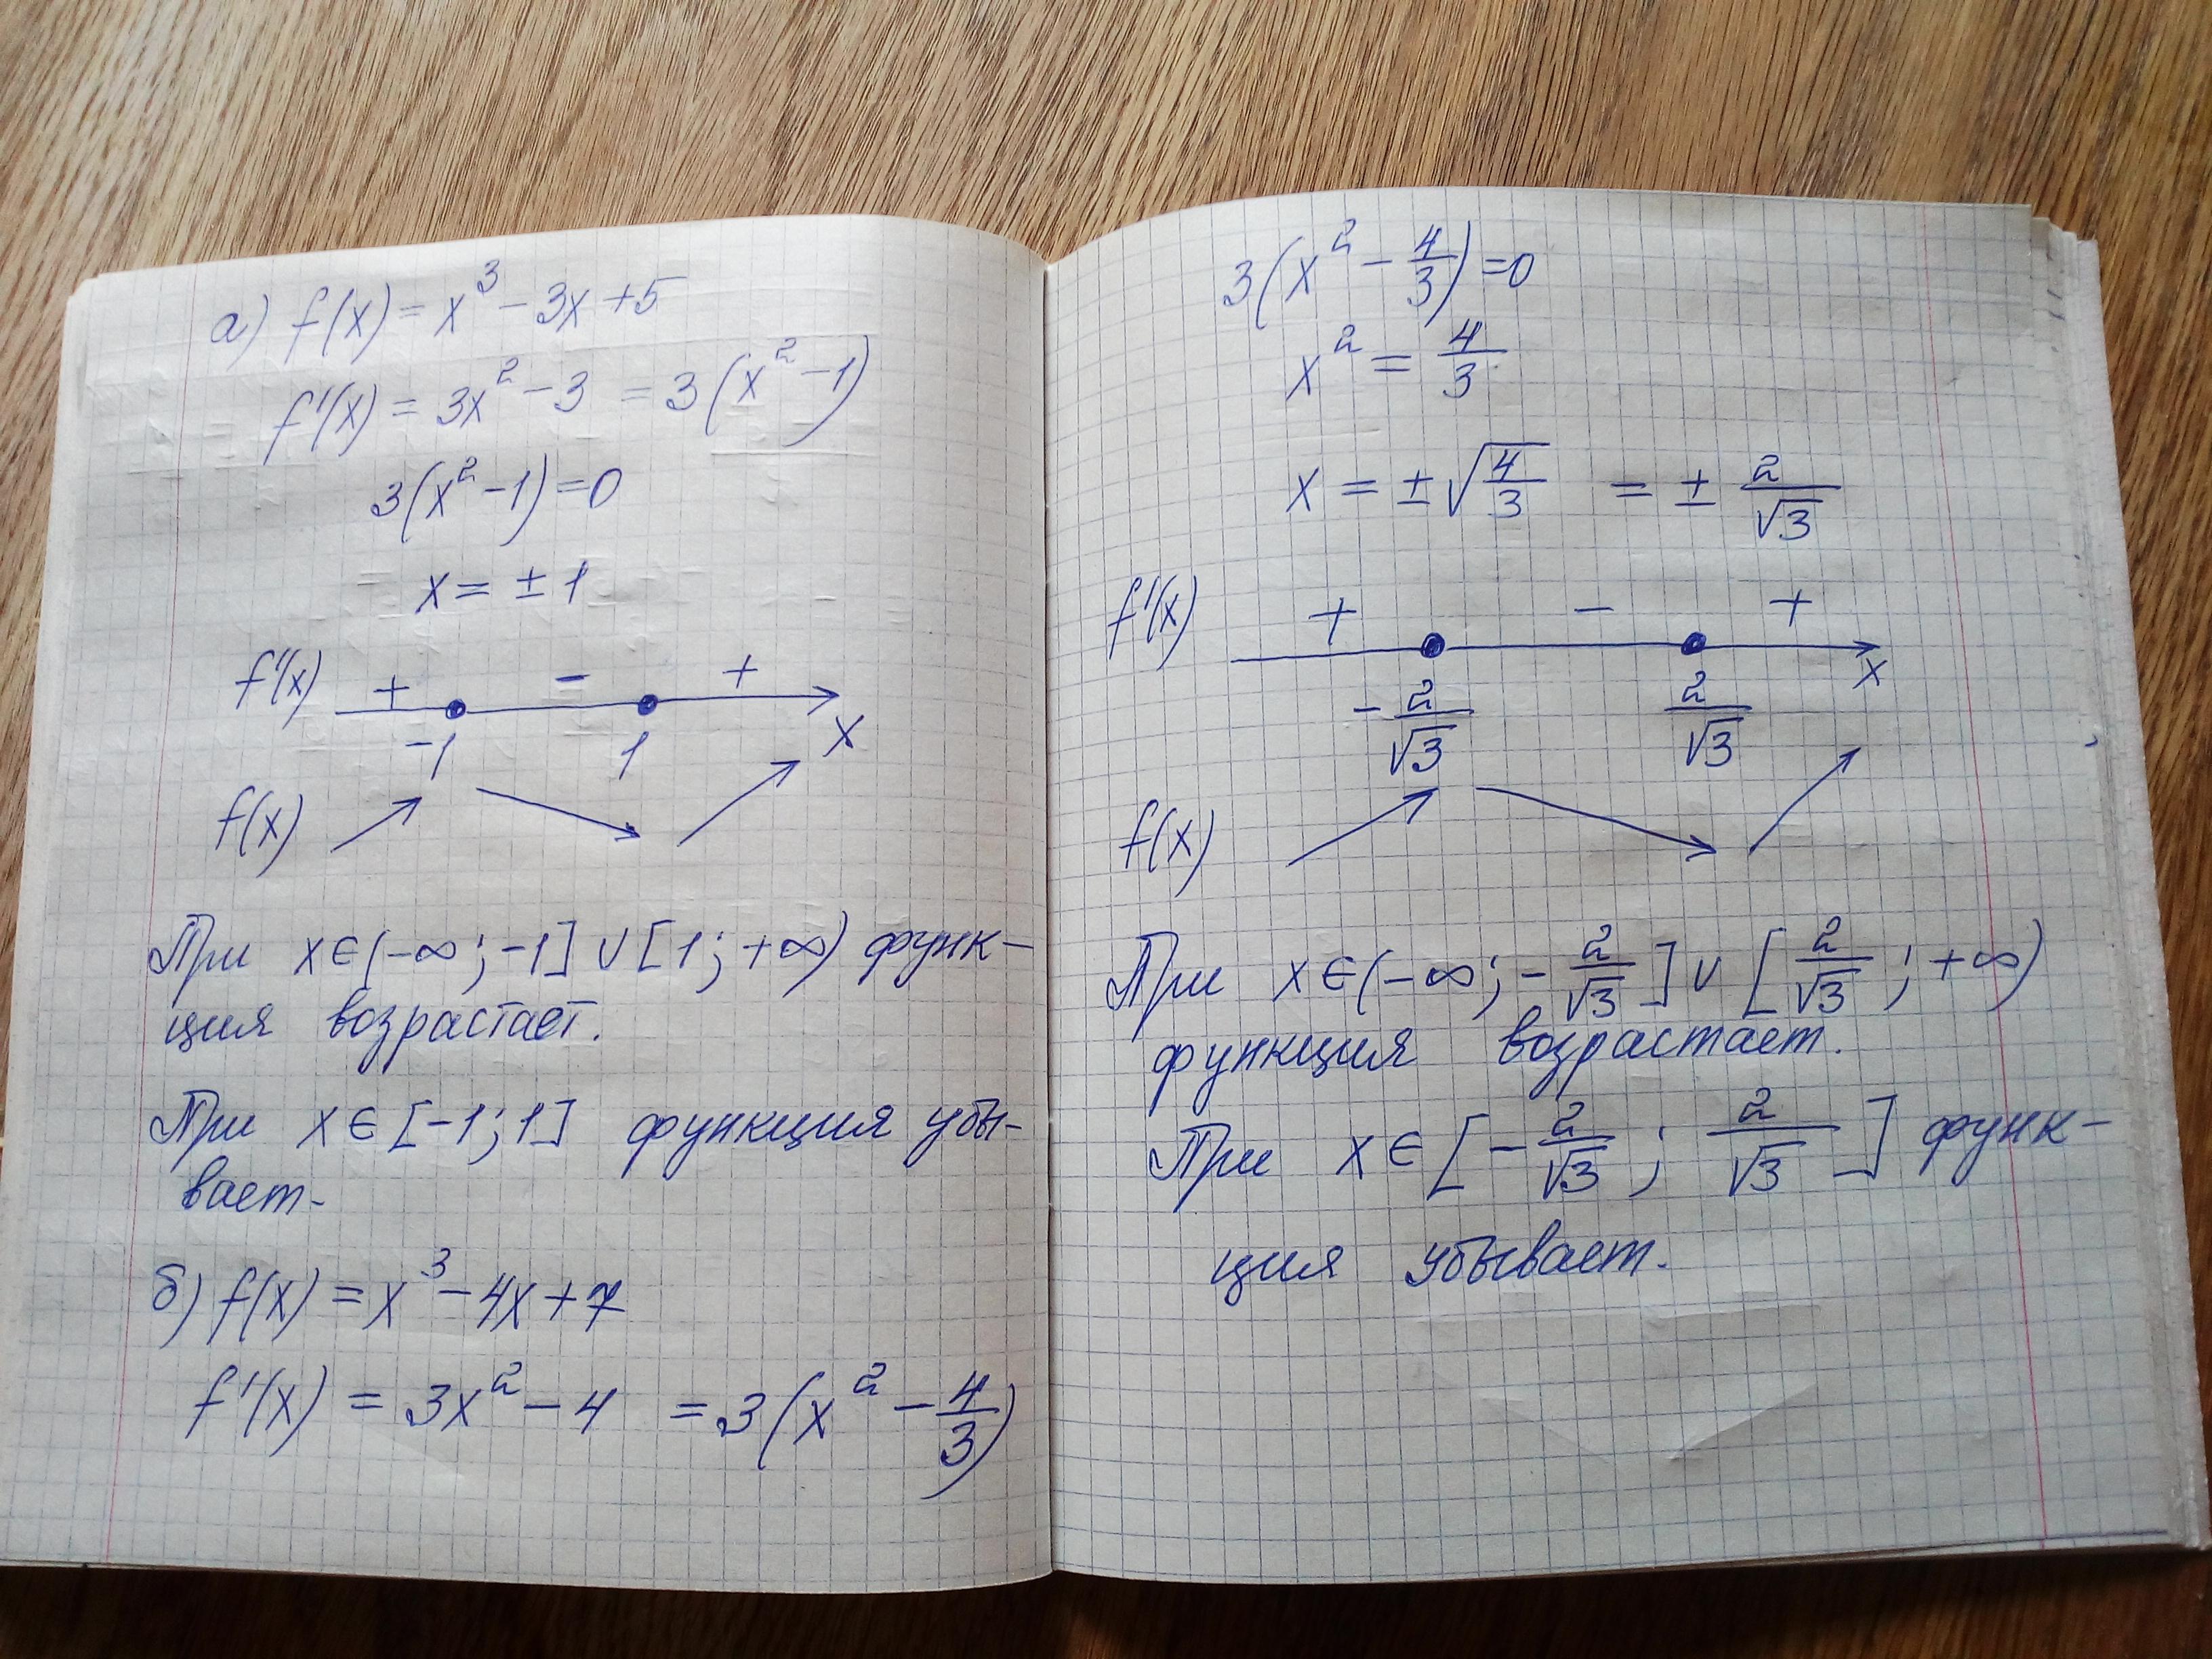 а) f(x) = x³ - 3x + 5
f'(x) = 3x² - 3 = 3(x² - 1)
3(x² - 1) = 0
x = ± 1
f'(x) + - +
-1 1 x
f(x)
При x ∈ (-∞; -1] ∪ [1; +∞) функ-
ция возрастает.
При x ∈ [-1; 1] функция убы-
вает.
б) f(x) = x³ - 4x + 7
f'(x) = 3x² - 4 = 3(x² - 4/3)
3(x² - 4/3) = 0
x² = 4/3
x = ± √(4/3) = ± 2/√3
f'(x) + - +
-2/√3 2/√3 x
f(x)
При x ∈ (-∞; -2/√3] ∪ [2/√3; +∞)
функция возрастает.
При x ∈ [-2/√3; 2/√3] функ-
ция убывает.